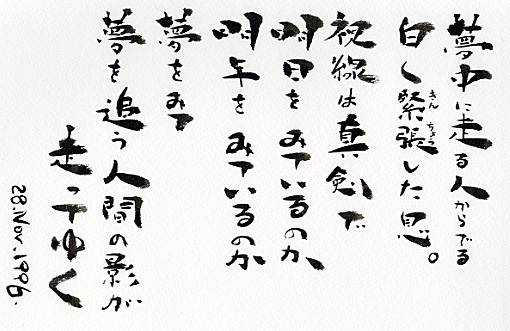 夢中に走る人からでる
白く緊張した息。
きんちょう
視線は真剣で
明日をみているのか
明年をみているのか
夢をみて
夢を追う人間の影が
走ってゆく
28.Nov.1996.